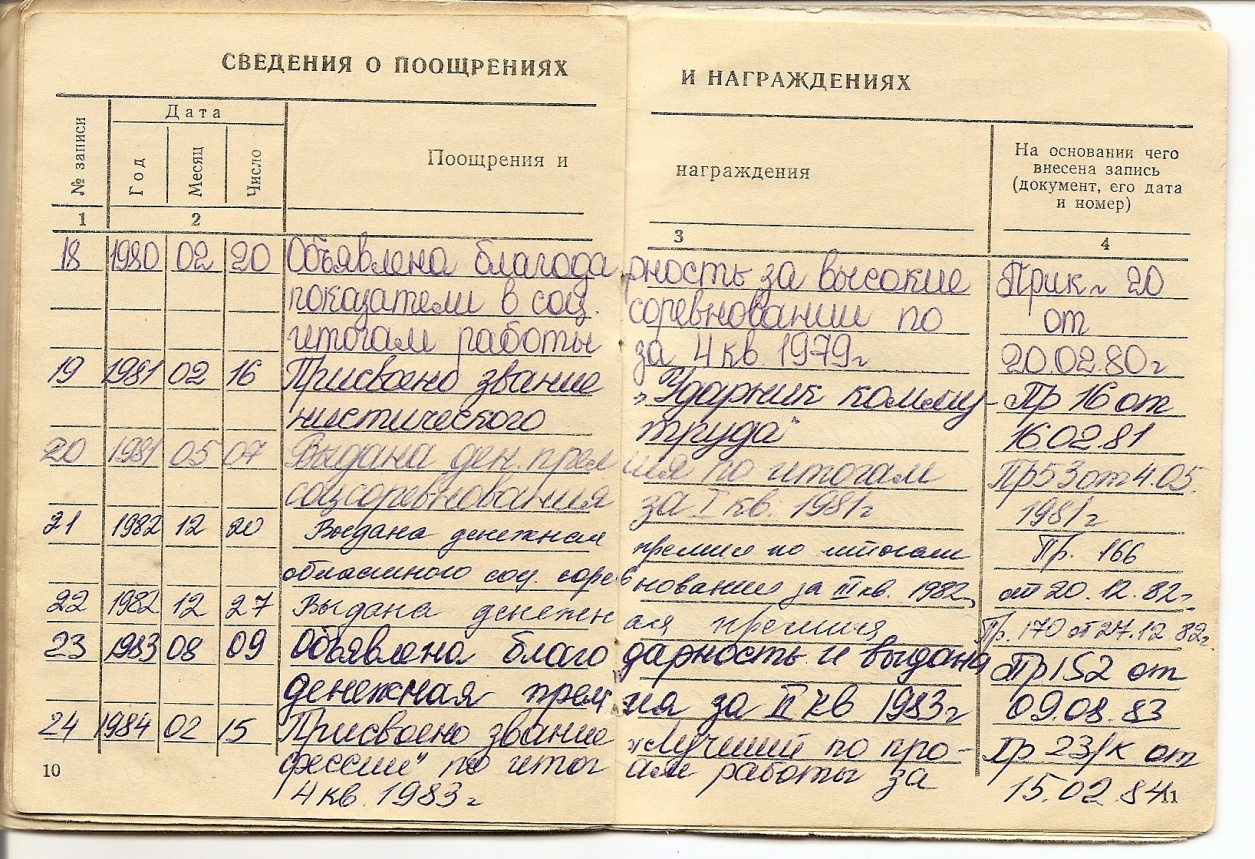 СВЕДЕНИЯ О ПООЩРЕНИЯХ И НАГРАЖДЕНИЯХ
№ записи Дата Поощрения и награждения На основании чего
внесена запись
(документ, его дата
и номер)
Год Месяц Число
1 2 3 4
18 1980 02 20 Объявлена благодарность за высокие Прик. 20
показатели в соц. соревновании по от
итогам работы за 4 кв. 1979г 20.02.80г
19 1981 02 16 Присвоено звание „Ударник комму- Пр 16 от
нистического труда" 16 02.81
20 1981 05 07 Выдана ден. премия по итогам Пр 53 от 4.05.
соцсоревнования за I кв. 1981г 1981г
21 1982 12 20 Выдана денежная премия по итогам Пр. 166
областного соц. соревнования за III кв. 1982, от 20.12.82г.
22 1982 12 27 Выдана денежная премия Пр. 170 от 27.12 82г.
23 1983 08 09 Объявлена благодарность и выдана Пр 152 от
денежная премия за II кв 1983г 09.08.83
24 1984 02 15 Присвоено звание „Лучший по про- Пр 23/к от
фессии" по итогам работы за 15.02.84
4 кв. 1983г
10 11